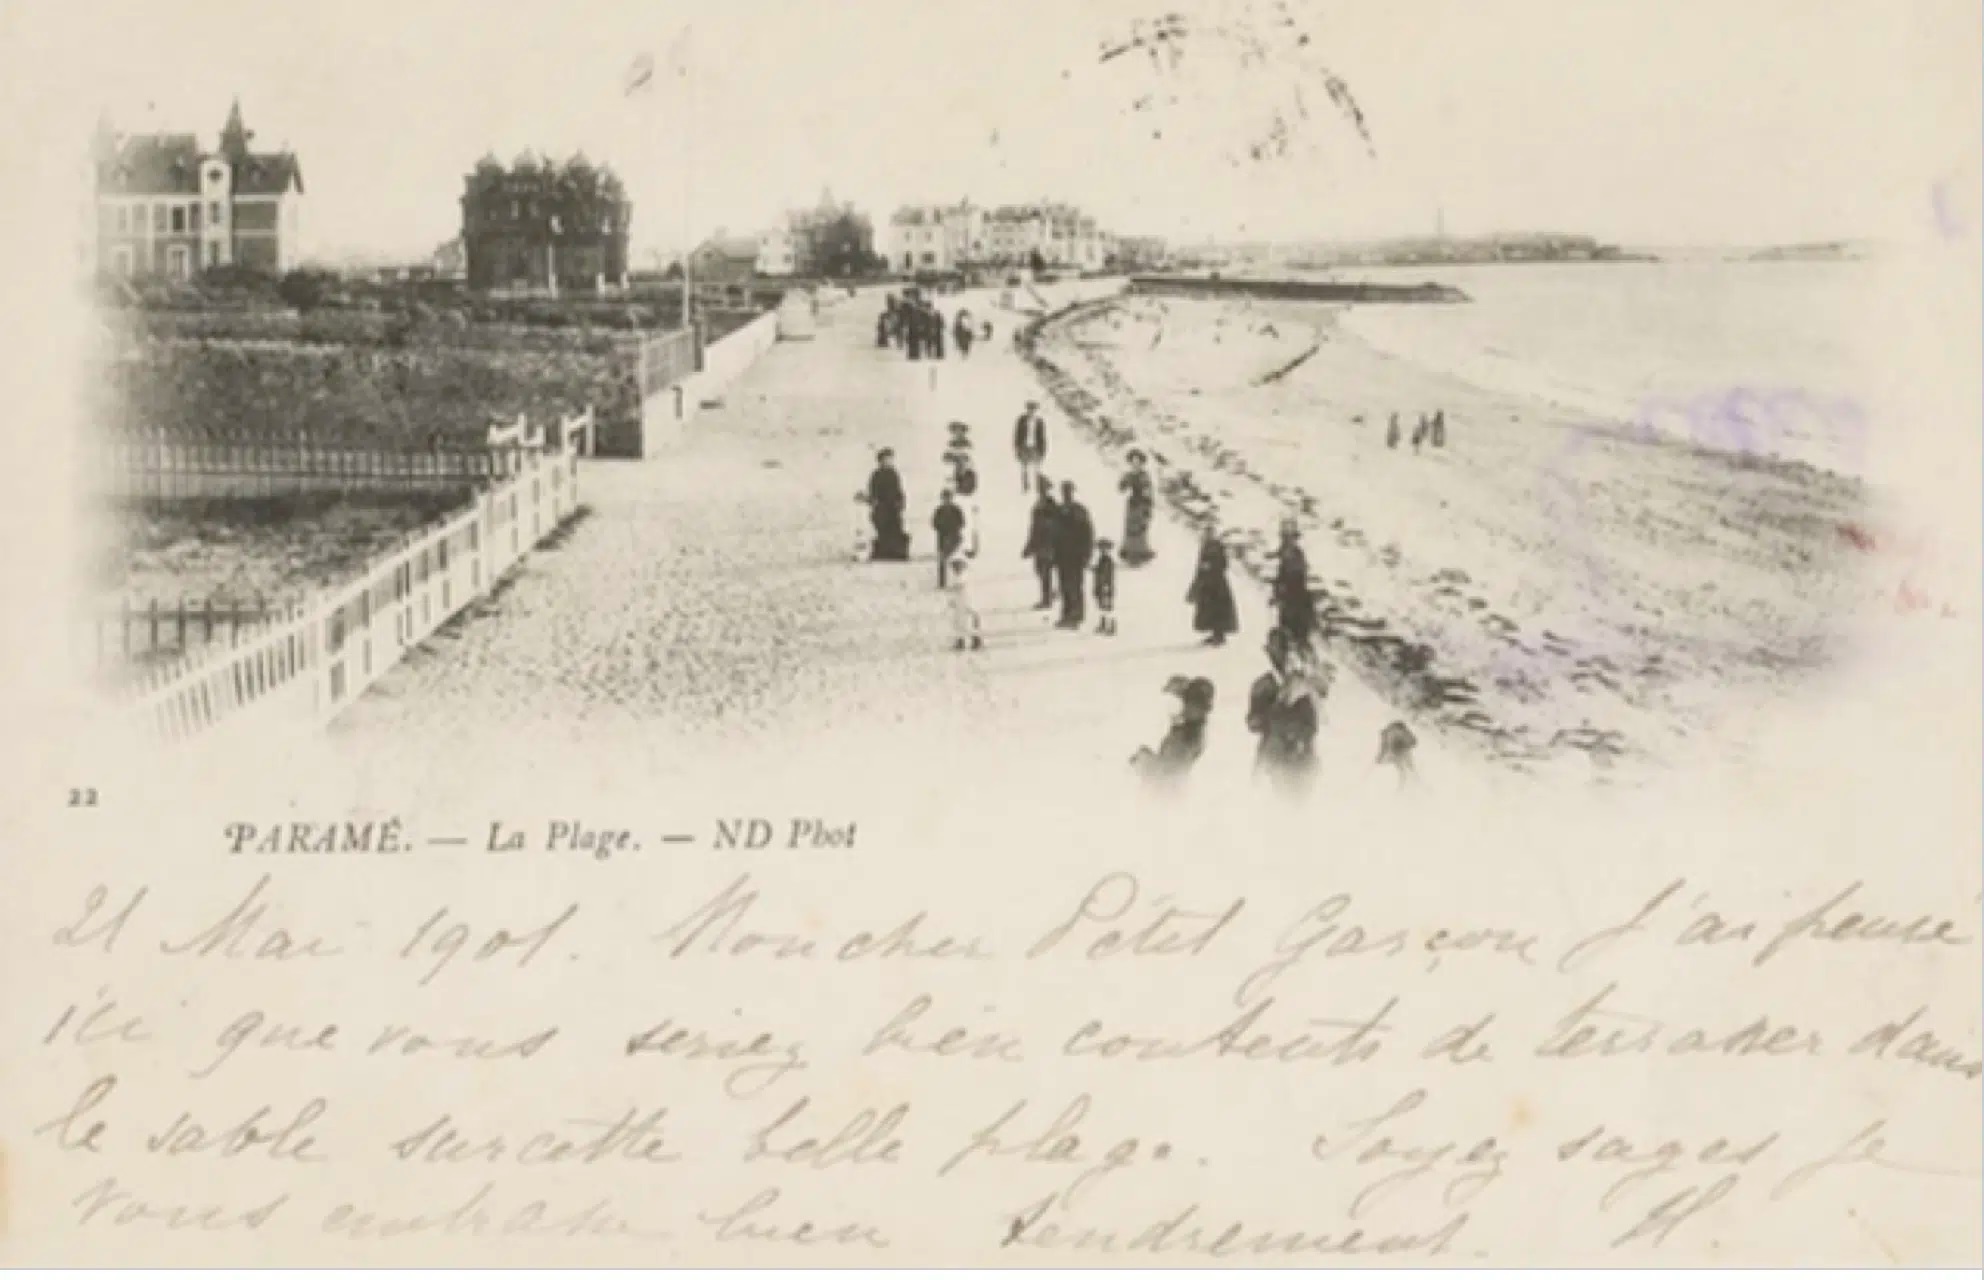 22
PARAMÉ. — La Plage. — ND Phot
21 Mai 1901. Mon cher Petit Garçon J'ai pensé
ici que vous seriez bien contents de terrasser dans
le sable sur cette belle plage. Soyez sages je
vous embrasse bien tendrement. H.